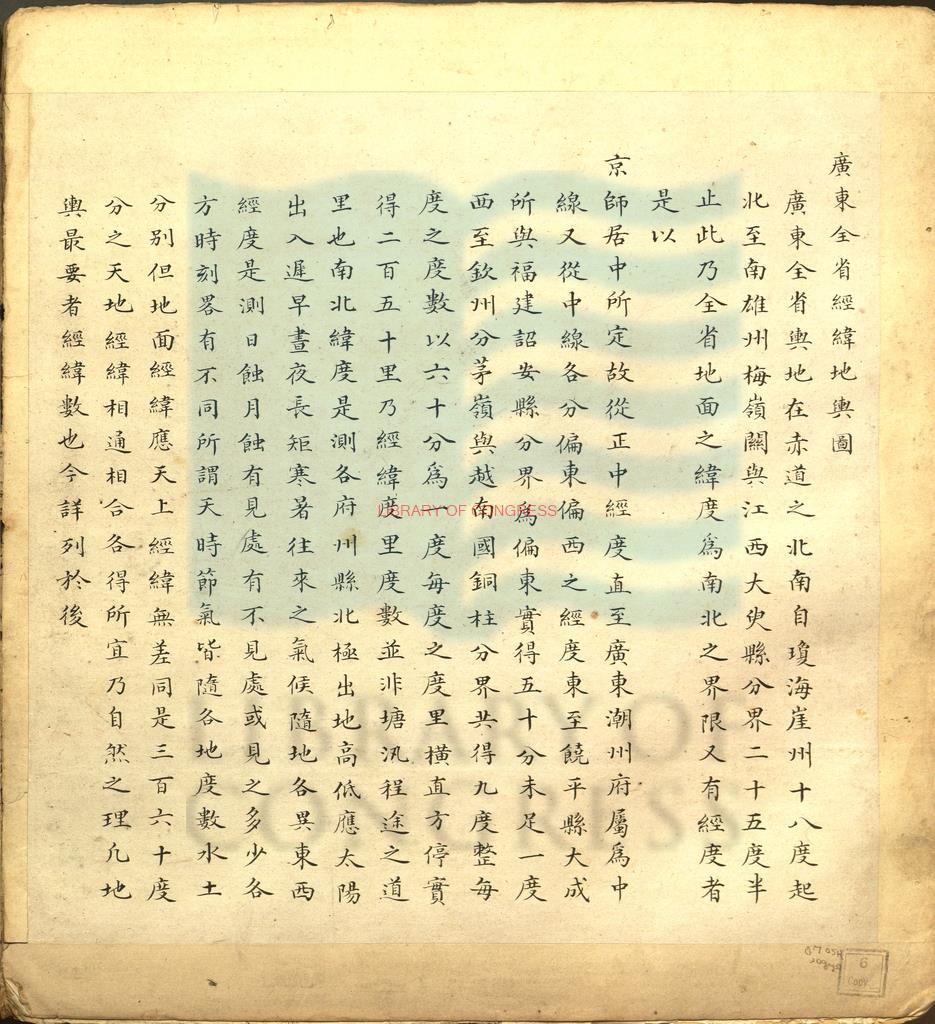 廣東全省經緯地輿圖
廣東全省輿地在赤道之北南自瓊海崖州十八度起
北至南雄州梅嶺關與江西大庾縣分界二十五度半
止此乃全省地面之緯度爲南北之界限又有經度者
是以
京師居中所定故從正中經度直至廣東潮州府屬爲中
線又從中線各分偏東偏西之經度東至饒平縣大成
所與福建詔安縣分界爲偏東實得五十分未足一度
西至欽州分茅嶺與越南國銅柱分界共得九度整每
度之度數以六十分爲一度每度之度里橫直方停實
得二百五十里乃經緯度里度數並非塘汛程途之道
里也南北緯度是測各府州縣北極出地高低應太陽
出入遲早晝夜長矩寒暑往來之氣候隨地各異東西
經度是測日蝕月蝕有見處有不見處或見之多少各
方時刻畧有不同所謂天時節氣皆隨各地度數水土
分別但地面經緯應天上經緯無差同是三百六十度
分之天地經緯相通相合各得所宜乃自然之理凢地
輿最要者經緯數也今詳列於後
LIBRARY OF CONGRESS
LIBRARY OF
CONGRESS
6
COPY